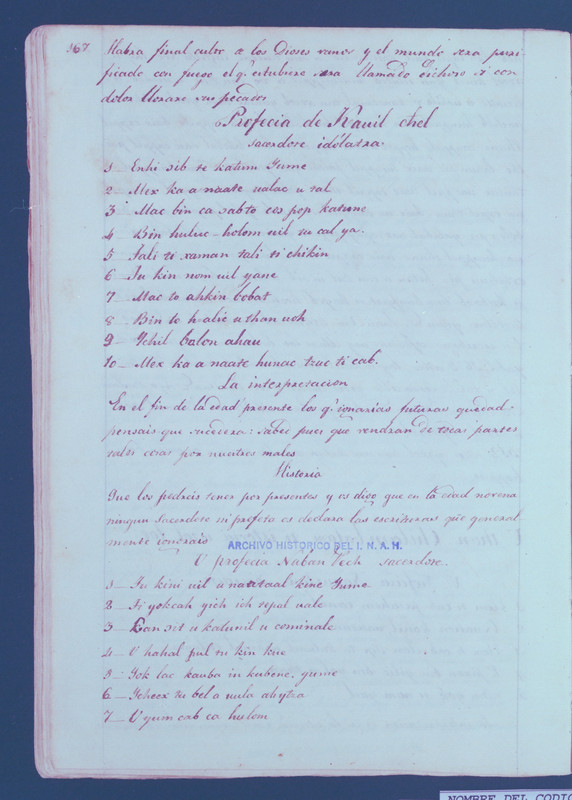 367
Habra final culto a los Dioses vanos y el mundo sera puri
ficado con fuego el q.e estubiere sera llamado Dichoso si con
dolor llorare sus pecados
Profecia de Kauil chel
sacerdote idólatra.
1 – Enhi sib te katun Yume
2 – Mex ka a naate ualac u tal
3 – Mac bin ca sabto cos pop katune
4 – Bin huluc holom uil tu cal ya.
5 – Tali ti xaman tali ti chikin
6 – Tu kin nom uil yane
7 – Mac to ahkin bobat
8 – Bin to h alic u than uoh
9 – Ychil bolon ahau
10 – Mex ka a naate hunac tzuc ti cab.
La interpretacion
En el fin de la edad presente los q.e ignorais futuras
pensais que sucedera: sabed pues que vendran de todas partes
tales cosas por nuestros males
Historia
Que los podreis tener por presentes y os digo que en la edad novena
ningun Sacerdote ni profeta os declara las escrituras que general
mente ignorais
ARCHIVO HISTORICO DEL I. N. A. H.
U profecia Nahau Pech sacerdote.
1 – Tu kini uil u natabal kine Yume
2 – Ti yokcah yich ich tepal uale
3 – Can sit u katunil u cominale
4 – U hahal pul tu kin kue
5 – Yok lac kauba in kubene. yume
6 – Ycheex tu bel a uula ahytza
7 – U yum cab ca hulom
NOMBRE DEL CODIC